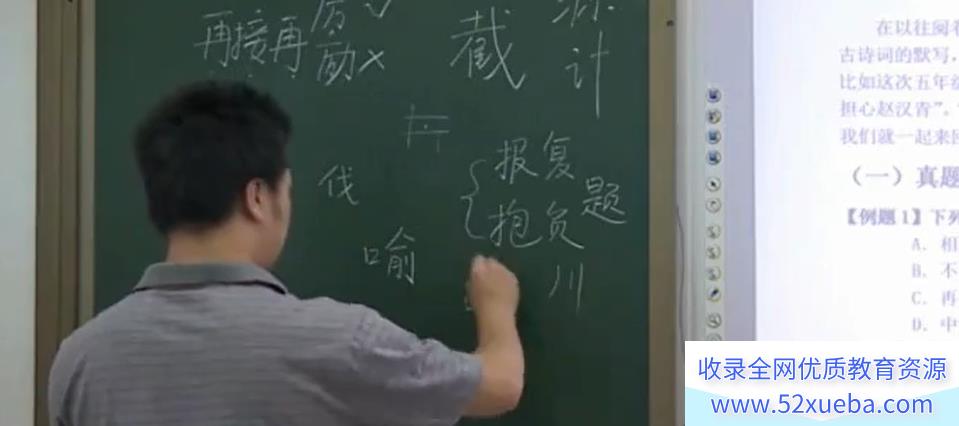 再接再
厉√
励×
截
计
伐
报复
抱负
题
喻
川
在以往阅卷
古诗词的默写，
比如这次五年级
担心赵汉青”。
我们就一起来回
（一）真题
【例题1】下列
A. 相
B. 不
C. 再
D. 中
收录全网优质教育资源
www.52xueba.com